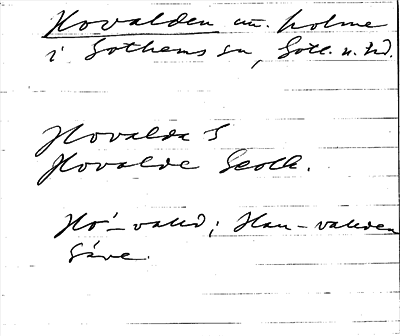 Hovalden un. holme
i Gothems sn, Gotl. n. hd.
Hovalda S
Hovalde Geolk.
Ho´-valld; Hau-vallden
Säve.